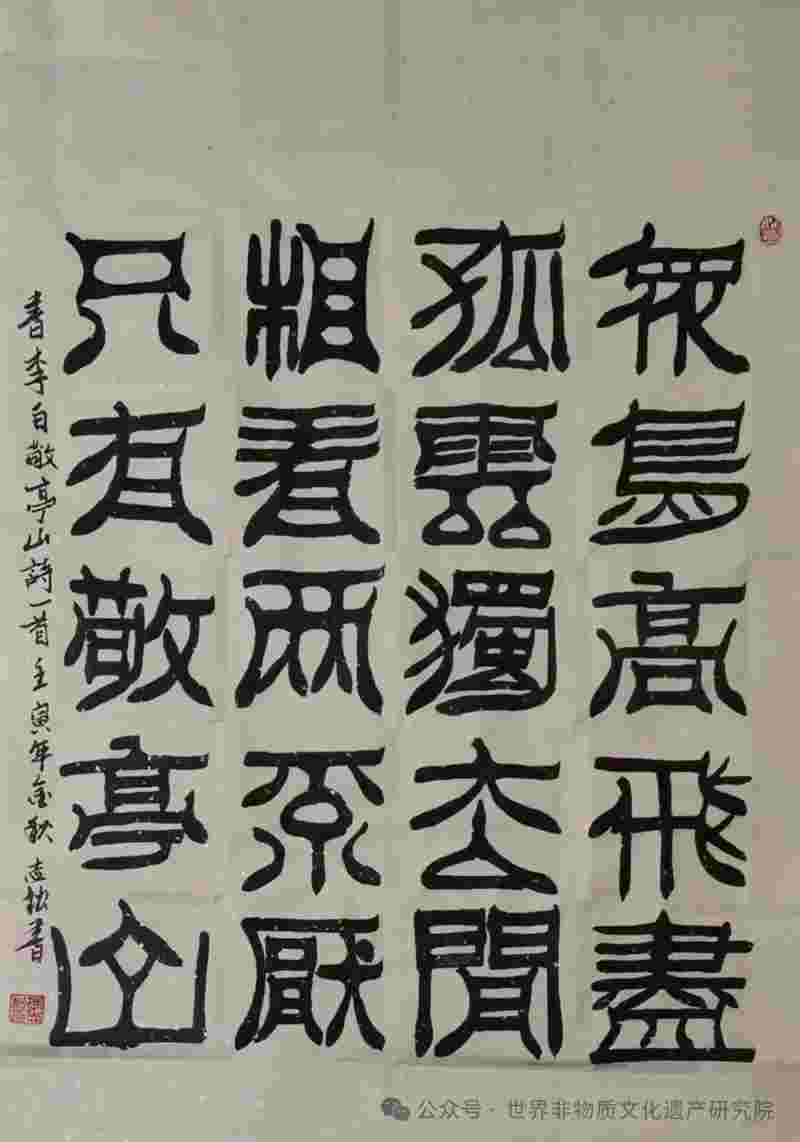 眾鳥高飛盡
孤雲獨去閒
相看两不厭
只有敬亭山
書李白敬亭山詩一首壬寅年金秋志書
公众号 · 世界非物质文化遗产研究院